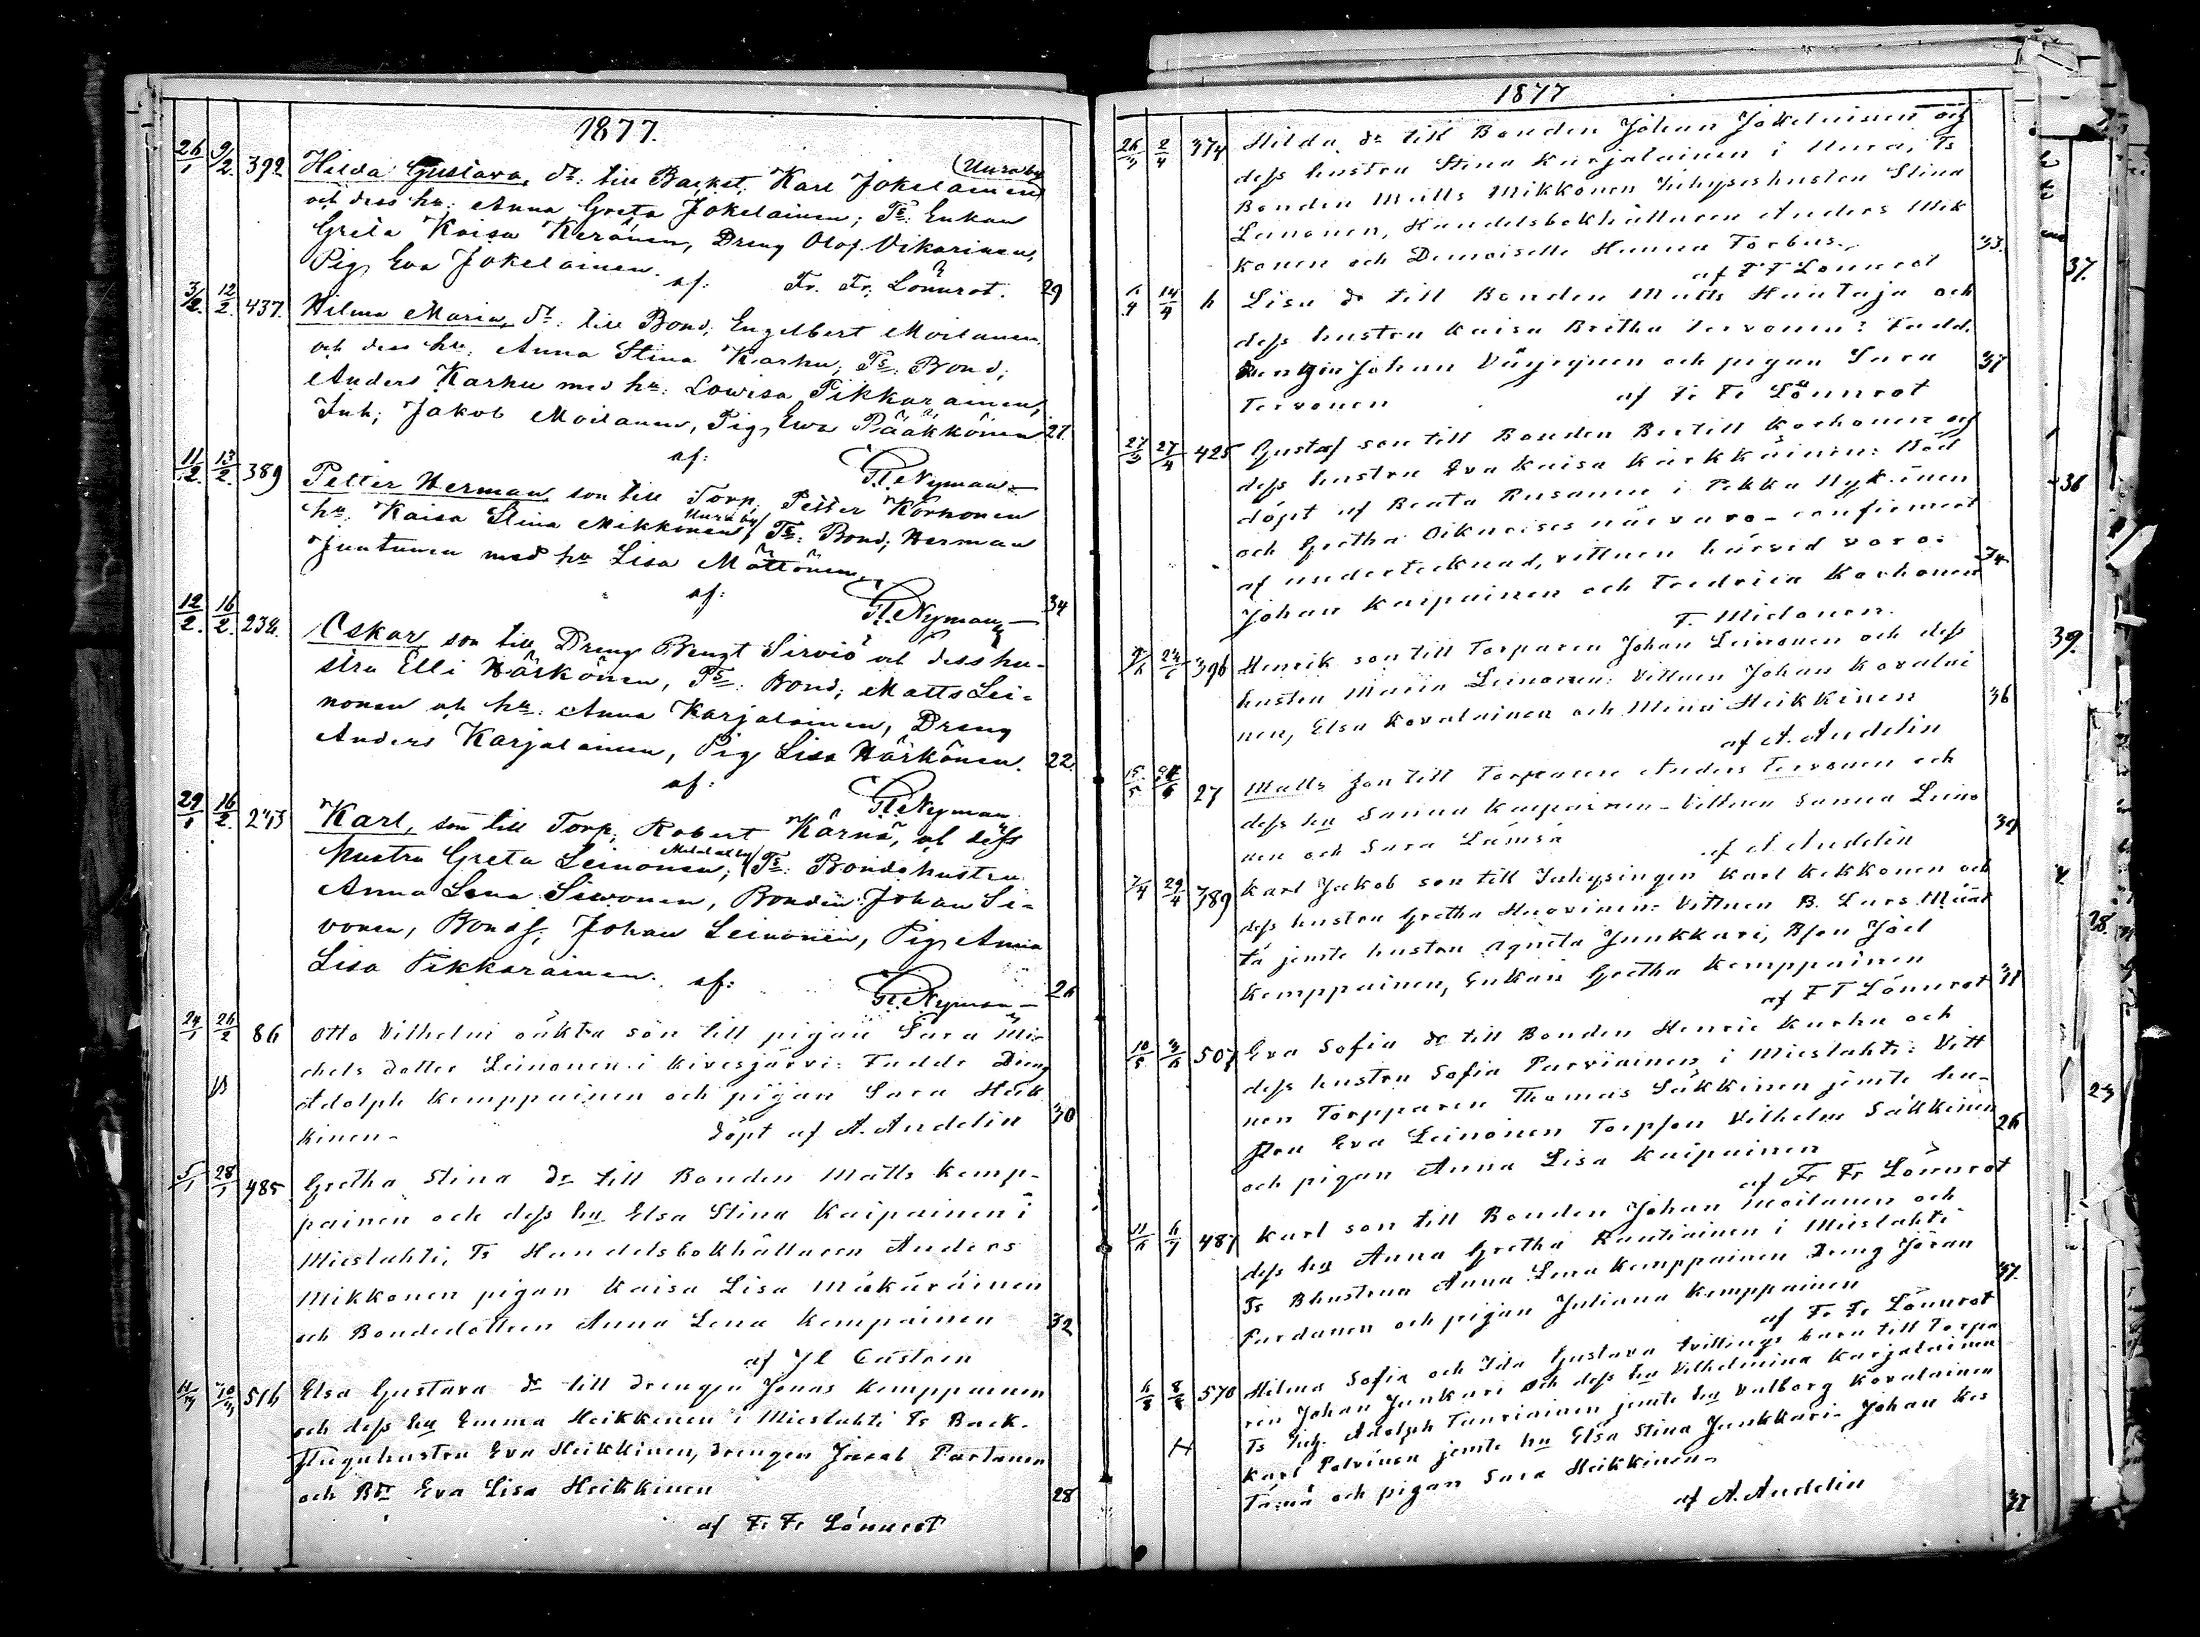 1877.
26/1 9/2. 392 Hilda Gustava, dr: till Backst. Karl Jokelainen (Uuraby)
och dess hu: Anna Greta Jokelainen; Ts: Enkan
Greta Kaisa Keränen, Dreng Olof Vikarinen,
Pig. Eva Jokelainen.
af: Fr. Fr. Lönnrot. 29
3/2. 12/2. 437. Hilma Maria, dr: till Bond; Engelbert Moilanen
och dess hu: Anna Stina Karhu; Ts: Bond;
Anders Karhu med hu: Lowisa Pikkarainen,
Inh; Jakob Moilanen, Pig, Ewa Pääkkönen 27.
af: Nyman
11/2. 13/2. 389 Petter Herman, son till Torp; Petter Korhonen
hu: Kaisa Stina Mikkonen, Uuraby/ Ts: Bond; Herman
Juntunen med hu Lisa Möttönen,
af: Nyman 34
12/2. 16/2. 238. Oskar, son till Dreng Bengt Sirviö och dess hu-
stru Elli Härkönen, Ts: Bond; Matts Lei-
nonen och hu: Anna Karjalainen, Dreng
Anders Karjalainen, Pig Lisa Härkönen. 22.
af: Nyman
29/1 16/2. 243 Karl, son till Torp; Robert Kärnä, och dess
Hustru Greta Leinonen; Ts: Bondehustru
Anna Lena Siwonen, Bonden Johan Si-
vonen, Bonds; Johan Leinonen, Pig, Anna
Lisa Pikkarainen. af: Nyman 26
24/1 26/2 86 Otto Vilhelm oäkta son till pigan Sara Mi-
chels dotter Leinonen i Kivesjärvi: Fadde Dreng
Adolph Kemppainen och pigan Sara Heik
kinen- döpt af A. Andelin 30
5/1 28/1 485 Gretha Stina dr till Bonden Matts Kemp-
painen och dess hu Elsa Stina Kaipainen i
Mieslahti, Ts Handelsbokhållaren Anders
Mikkonen pigan Kaisa Lisa Mäkäräinen
och Bondedottren Anna Lena Kempainen 32
af J l Castren
516 Elsa Gustava dr till drengen Jonas Kemppainen
och dess hu Emma Heikkinen i Mieslahti Ts Back-
stuguhustru Eva Heikkinen, drengen Jacob Partanen
och Bdr Eva Lisa Heikkinen 28
af Fr Fr Lönnrot
1877
374 Hilda dr till Bonden Johan Jokelainen och
dess hustru Stina Karjalainen i Uura, Ts
Bonden Matts Mikkonen Inhyseshustru Stina
Leinonen, Handelsbokhållaren Anders Mik
konen och Demoiselle Hanna Forbus. 33.
af F F Lönnrot
14/4 Lisa dr till Bonden Matts Hautaja och
dess hustru Kaisa Bretha Tervonen: Fadd.
Drengen Johan Väyrynen och pigan Sara 37
Tervonen af Fr Fr Lönnrot
27/3 27/4 425 Gustaf son till Bonden Bertill Korhonen och
dess hustru Eva Kaisa Karkkainen: Nöd
döpt af Beata Rusanen i Pekka Nykänen
och Gretha Oikarises närvaro - confirmerat
af undertecknad, vittnen härvid voro:
Johan Kaipainen och Fredrica Korhonen 74
F. Midanen.
396 Henrik son till Torparen Johan Leinonen och dess
hustru Maria Leinonen: Vittnen Johan Kovalai
nen, Elsa Kovalainen och Mena Heikkinen 36
af A. Andelin
27 Matts son till Torparen Anders Tervonen och
dess hu Sanna Kaipainen - Vittnen Sanna Leino
nen och Sara Lämsä 39
af A Andelin
7/4 29/4 789 Karl Jakob son till Inhysingen Karl Kekkonen och
dess hustru Gretha Huovinen: Vittnen B. Lars Määt
tä jemte hustru Agneta Junkkari, Bson Joel
Kemppainen, Enkan Gretha Kemppainen
af F F Lönnrot 31
507 Eva Sofia dr till Bonden Henric Karhu och
dess hustru Sofia Parviainen i Mieslahti: Vitt
nen Torpparen Thomas Säkkinen jemte hu-
stru Eva Leinonen Torpson Vilhelm Säkkinen 26
och pigan Anna Lisa Kaipainen
af Fr Fr Lönnrot
487 Karl son till Bonden Johan Moilanen och
dess hu Anna Gretha Rautiainen i Mieslahti
Ts Bhustrun Anna Lena Kemppainen Dreng Jöran
Pardanen och pigan Juliana Kemppainen 37.
af Fr Fr Lönnrot
570 Hilma Sofia och Ida Gustava tvillinge barn till Torpa
ren Johan Junkari och dess hu Vilhelmina Karjalainen
Ts Inh. Adolph Tauriainen jemte hu Valborg Kovalainen
Karl Polvinen jemte hu Elsa Stina Junkkari- Johan Kes
och pigan Sara Heikkinen-
af A. Andelin
37.
36
39.
28.
23